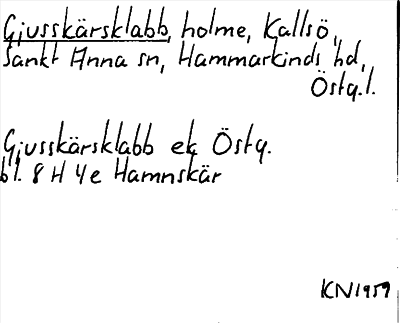 Gjusskärsklabb, holme, Kallsö,
Sankt Anna sn, Hammarkinds hd,
Östg.l.
Gjusskärsklabb ek Östg.
bl. 8 H 4e Hamnskär
KN1959